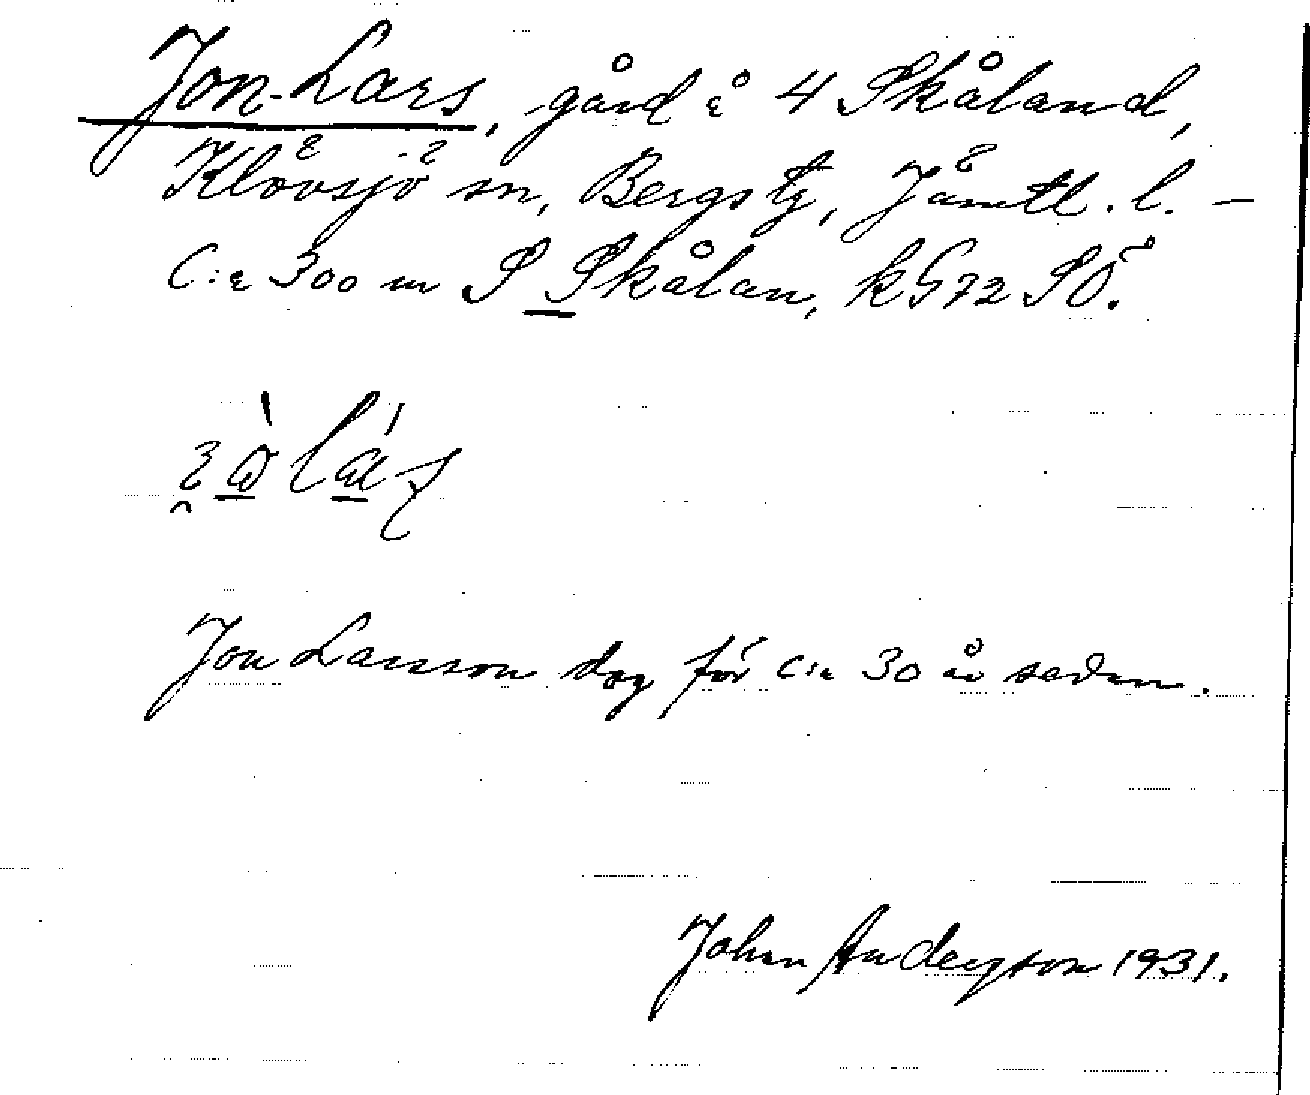 Jon-Lars, gård å 4 Skåland,
Klövsjö sn, Bergs tg, Jämtl. l. –
C:a 300 m S Skålan, k G72 SÖ.
Jon Larsson dog för c:a 30 år sedan.
Johan Anderson 1931.